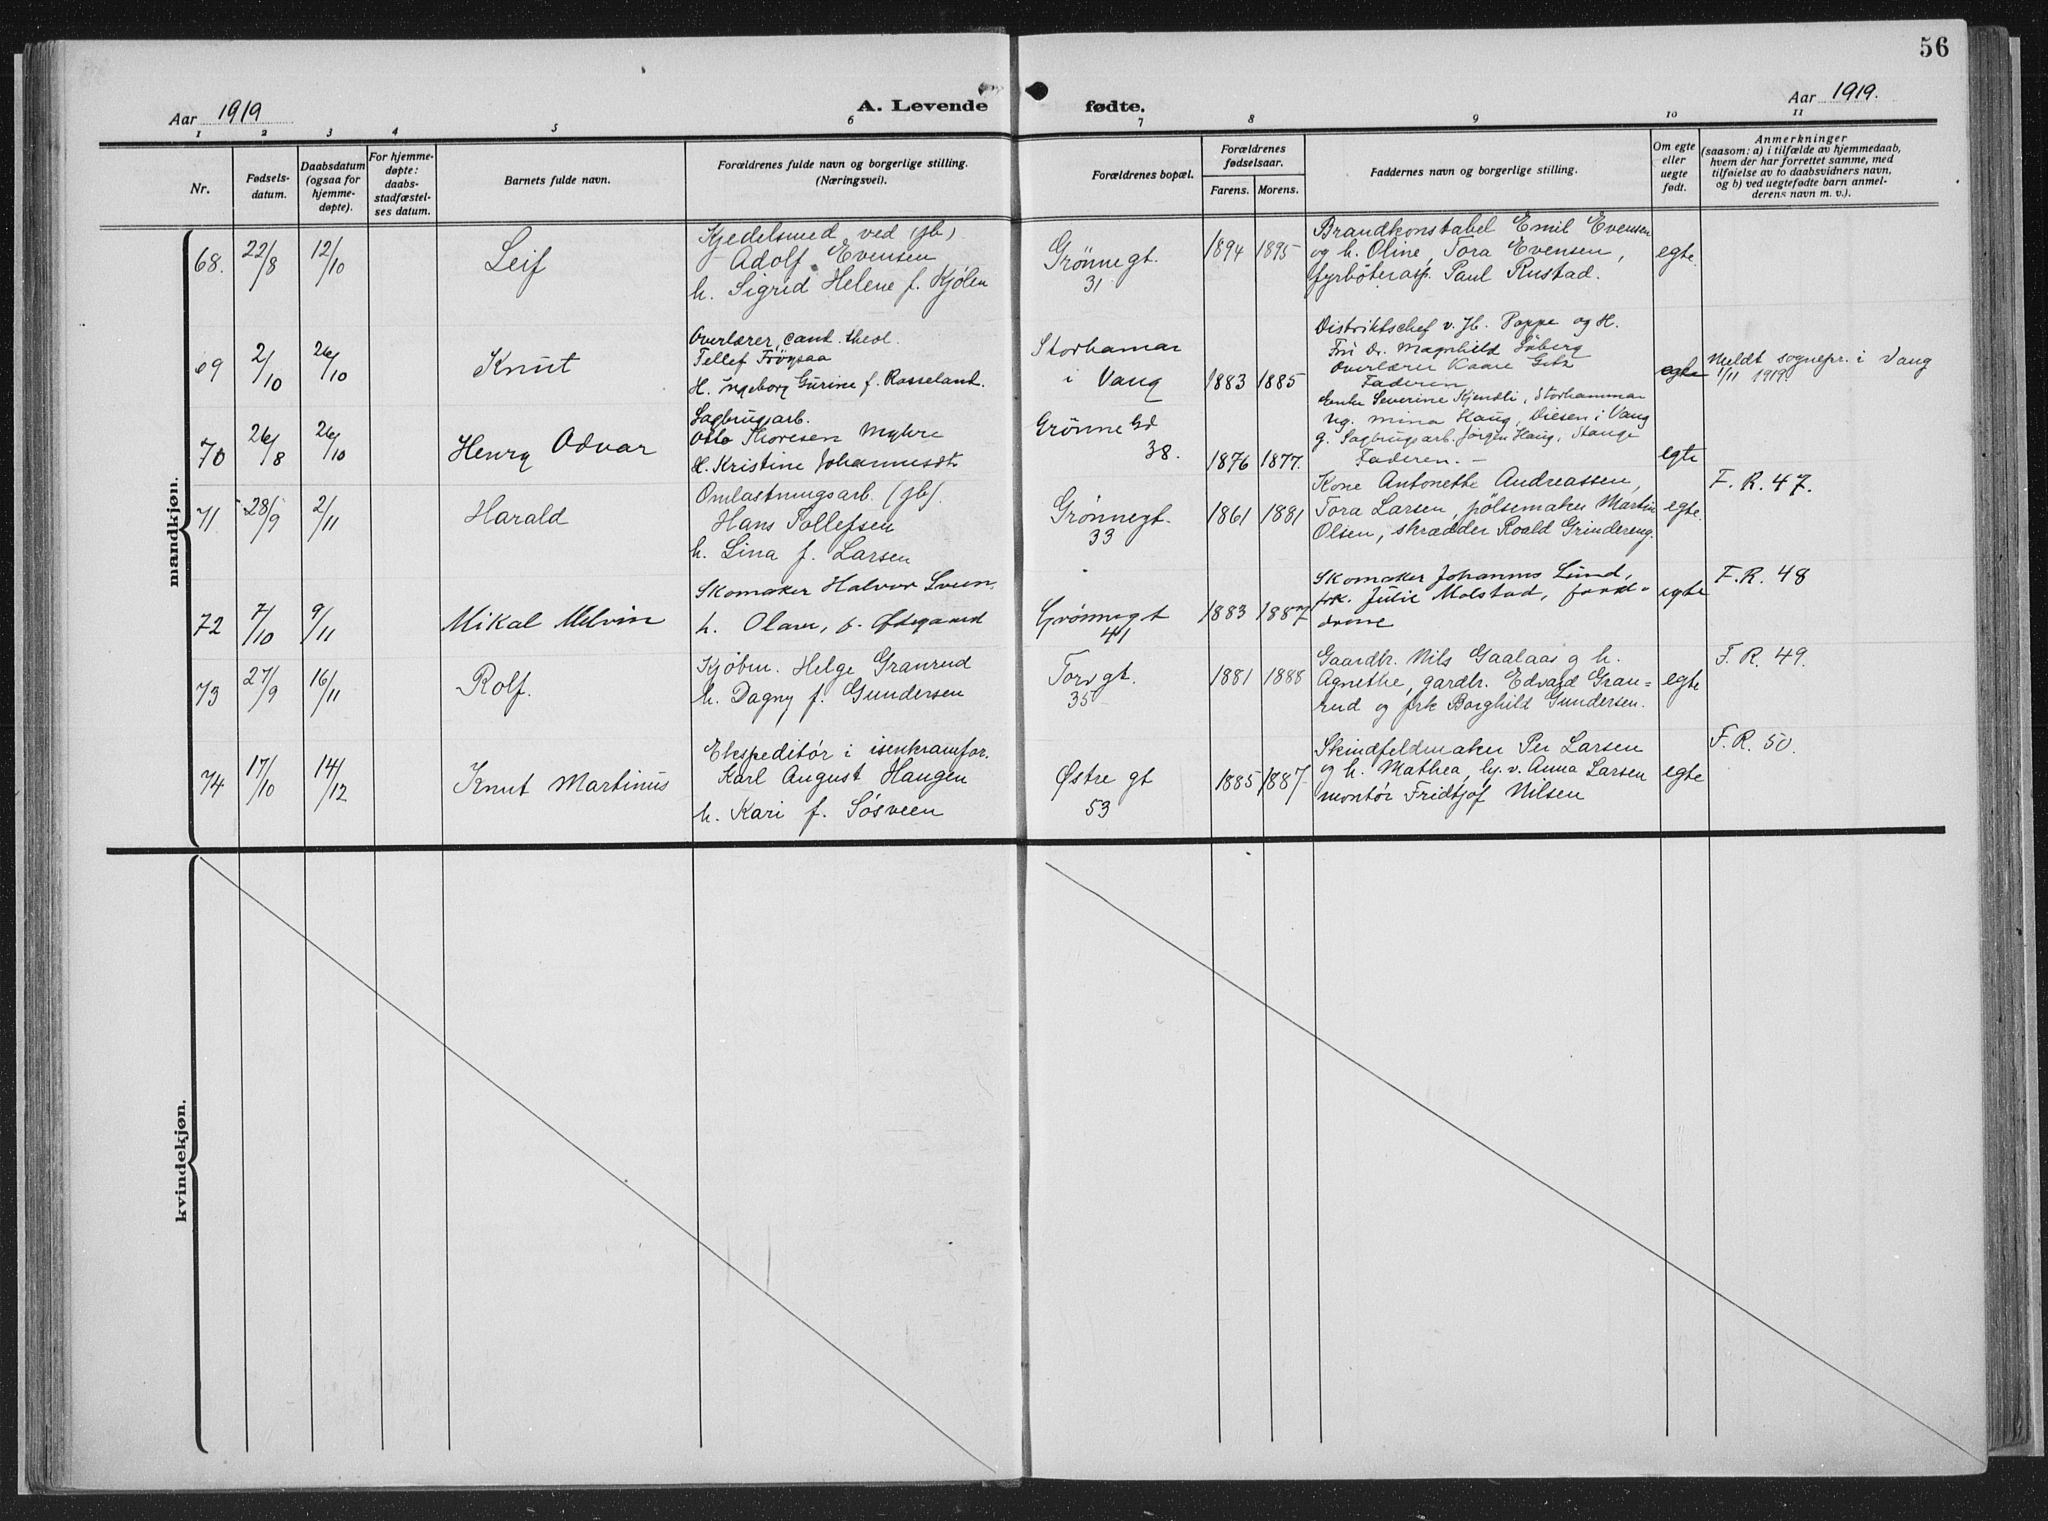 56
Aar 1919
A. Levende fødte.
Aar 1919.
1 2 3 4 5 6 7 8 9 10 11
Nr.
Fødsels-
datum.
Daabsdatum
(ogsaa for
hjemme-
døpte).
For hjemme-
døpte:
daabs-
stadfæstel-
ses datum.
Barnets fulde navn.
Forældrenes fulde navn og borgerlige stilling.
(Næringsvei).
Forældrenes bopæl.
Forældrenes
fødselsaar.
Farens. Morens.
Faddernes navn og borgerlige stilling.
Om egte
eller
uegte
født.
Anmerkninger
(saasom: a) i tilfælde av hjemmedaab,
hvem der har forrettet samme, med
tilføielse av to daabsvidners navn,
og b) ved uegtefødte barn anmel-
derens navn m. v.).
mandkjøn.
68. 22/8 12/10 Leif
Kjedelsmed ved (jb)
Adolf Evensen
h. Sigrid Helene f. Kjölen
Grønnegt.
31
1894 1895
Brandkonstabel Emil Evensen
og h. Oline, Tora Evensen,
fyrböterasp. Paul Rustad.
egte.
69 2/10 26/10 Knut
Overlærer, cand. theol.
Tellef Frøysaa
H. Ingeborg Gurine f. Rosseland.
Storhamar
i Vang
1883 1885
Distriktschef v. Jb. Poppe og H.
Fru Dr. Magnhild
Overlærer Kaare
Faderen
egte
Meldt sognepr. i Vang
1/11 1919.
70 26/8 26/10 Henry Odvar
Sagbrugsarb.
Otto Thoresen Myhre
H. Kristine Johannesdt.
Grønne Gd
38.
1876 1877.
Enke Severine Kjendli, Storhammar
Ug. Mina Haug, Diesen i Vang
g. Sagbrugsarb. Jørgen Haug, Stange
Faderen. -
egte
71. 28/9 2/11 Harald
Omlastningsarb. (jb).
Hans Tollefsen
h. Lina f. Larsen
Grønnegt.
33
1861 1881
Kone Antonette Andreassen,
Tora Larsen, pölsemaker Martin
Olsen, skrædder Roald Grindereng.
egte.
F. R. 47.
72 7/10 9/11 Mikal Melvin
Skomaker Halvor Sveen,
h. Olava, f. Ødegaard
Grönnegt
41
1883 1887
Skomaker Johannes Lund,
frk. Julie Molstad,
egte
F.R. 48
73 27/9 16/11 Rolf.
Kjøbm. Helge Granrud
h. Dagny f. Gundersen
Torvgt.
35
1881 1888
Gaardbr. Nils Gaalaas g h.
Agnethe, gardbr. Edvard Gran=
rud og frk Borghild Gundersen.
egte
F. R. 49.
74 17/10 14/12 Knut Martinus
Ekspeditör i isenkramfor.
Karl August Haugen
h. Kari f. Sösveen
Østre gt
53
1885 1887
Skindfeldmaker Per Larsen
og h. Mathea, hj. v. Anna Larsen
montör Fridtjof Nilsen
egte
F. R. 50.
kvindekjøn.